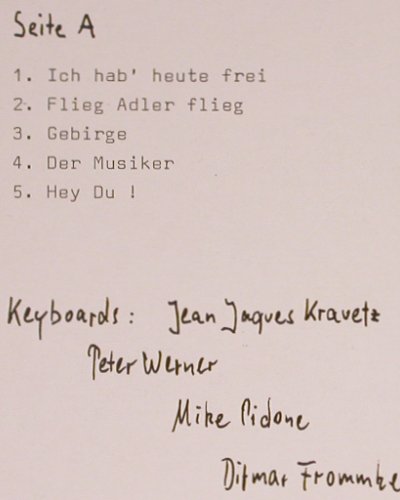 Seite A
1. Ich hab' heute frei
2. Flieg Adler flieg
3. Gebirge
4. Der Musiker
5. Hey Du !
Keyboards: Jean Jaques Kravetz
Peter Werner
Mike Pidone
Ditmar Frommke